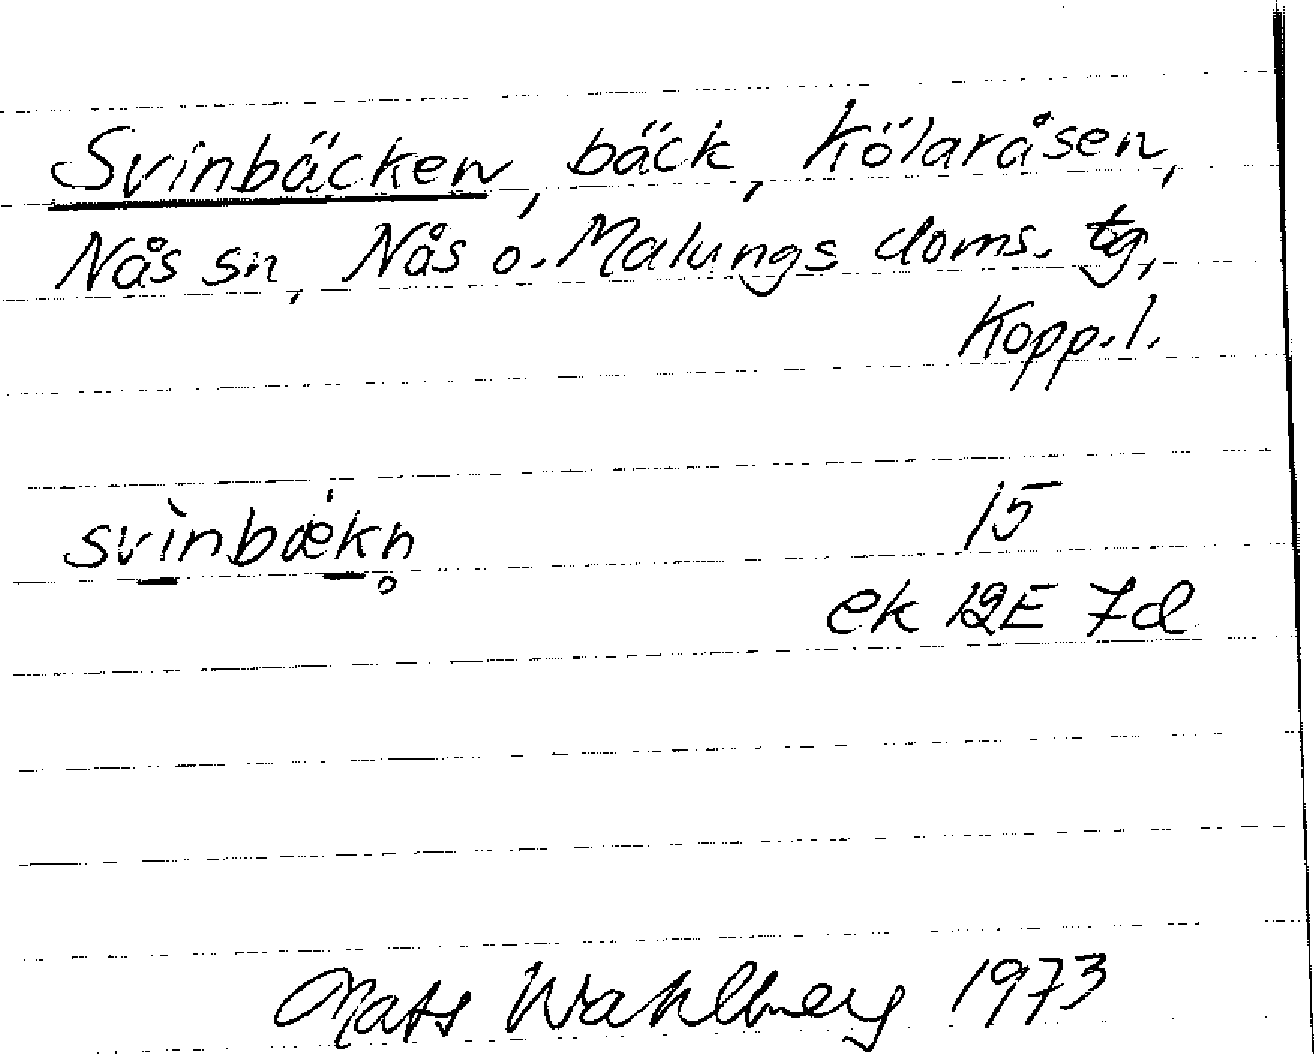 Svinbäcken, bäck, Kölaråsen,
Nås sn, Nås o. Malungs doms. tg,
Kopp. l.
svìnbæ̀kn̥ 15
ek 12E 7d
Mats Wahlberg 1973